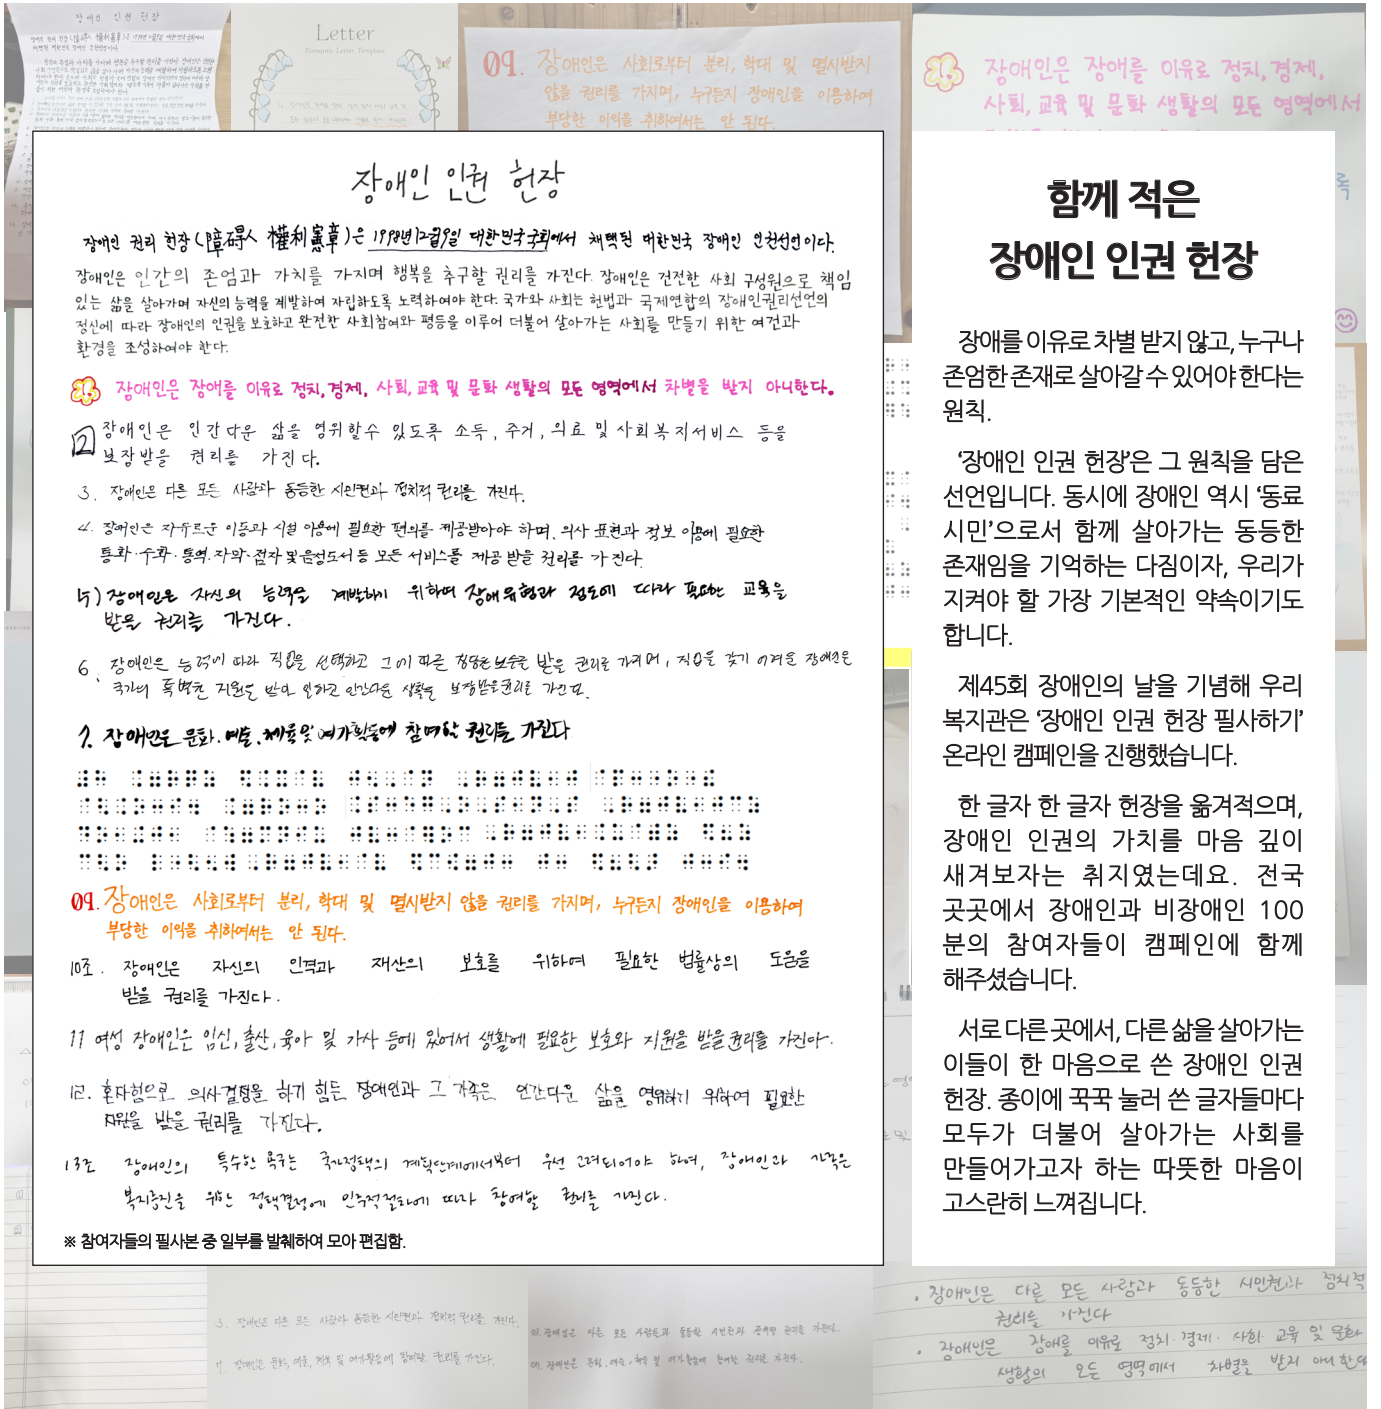 장애인 인권 헌장
Letter
Romantic Letter Template
09. 장애인은 사회로부터 분리, 학대 및 멸시받지
않을 권리를 가지며, 누구든지 장애인을 이용하여
부당한 이익을 취하여서는 안 된다.
장애인은 장애를 이유로 정치, 경제,
사회, 교육 및 문화 생활의 모든 영역에서
장애인 인권 헌장
장애인 권리 헌장(障碍人 權利憲章)은 1998년 12월 9일 대한민국국회에서 채택된 대한민국 장애인 인권선언이다.
장애인은 인간의 존엄과 가치를 가지며 행복을 추구할 권리를 가진다. 장애인은 건전한 사회 구성원으로 책임
있는 삶을 살아가며 자신의 능력을 계발하여 자립하도록 노력하여야 한다. 국가와 사회는 헌법과 국제연합의 장애인권리선언의
정신에 따라 장애인의 인권을 보호하고 완전한 사회참여와 평등을 이루어 더불어 살아가는 사회를 만들기 위한 여건과
환경을 조성하여야 한다.
1. 장애인은 장애를 이유로 정치, 경제, 사회, 교육 및 문화 생활의 모든 영역에서 차별을 받지 아니한다.
2 장애인은 인간다운 삶을 영위할수 있도록 소득, 주거, 의료 및 사회복지서비스 등을
보장받을 권리를 가진다.
3. 장애인은 다른 모든 사람과 동등한 시민권과 정치적 권리를 가진다.
4. 장애인은 자유로운 이동과 시설 이용에 필요한 편의를 제공받아야 하며, 의사 표현과 정보 이용에 필요한
통화·수화·통역·자막·점자 및 음성도서 등 모든 서비스를 제공 받을 권리를 가진다.
5) 장애인은 자신의 능력을 계발하기 위하여 장애유형과 정도에 따라 필요한 교육을
받을 권리를 가진다.
6. 장애인은 능력에 따라 직업을 선택하고 그에 따른 정당한 보수를 받을 권리를 가지며, 직업을 갖기 어려운 장애인은
국가의 특별한 지원을 받아 일하고 인간다운 생활을 보장받을 권리를 가진다.
7. 장애인은 문화, 예술, 체육 및 여가활동에 참여할 권리를 가진다
09. 장애인은 사회로부터 분리, 학대 및 멸시받지 않을 권리를 가지며, 누구든지 장애인을 이용하여
부당한 이익을 취하여서는 안 된다.
10조. 장애인은 자신의 인격과 재산의 보호를 위하여 필요한 법률상의 도움을
받을 권리를 가진다.
11 여성 장애인은 임신, 출산, 육아 및 가사 등에 있어서 생활에 필요한 보호와 지원을 받을 권리를 가진다.
12. 혼자힘으로 의사결정을 하기 힘든 장애인과 그 가족은 인간다운 삶을 영위하기 위하여 필요한
지원을 받을 권리를 가진다.
13조 장애인의 특수한 욕구는 국가정책의 계획단계에서부터 우선 고려되어야 하며, 장애인과 가족은
복지증진을 위한 정책결정에 민주적절차에 따라 참여할 권리를 가진다.
※ 참여자들의 필사본 중 일부를 발췌하여 모아 편집함.
함께 적은
장애인 인권 헌장
장애를 이유로 차별 받지 않고, 누구나
존엄한 존재로 살아갈 수 있어야 한다는
원칙.
‘장애인 인권 헌장’은 그 원칙을 담은
선언입니다. 동시에 장애인 역시 ‘동료
시민’으로서 함께 살아가는 동등한
존재임을 기억하는 다짐이자, 우리가
지켜야 할 가장 기본적인 약속이기도
합니다.
제45회 장애인의 날을 기념해 우리
복지관은 ‘장애인 인권 헌장 필사하기’
온라인 캠페인을 진행했습니다.
한 글자 한 글자 헌장을 옮겨적으며,
장애인 인권의 가치를 마음 깊이
새겨보자는 취지였는데요. 전국
곳곳에서 장애인과 비장애인 100
분의 참여자들이 캠페인에 함께
해주셨습니다.
서로 다른 곳에서, 다른 삶을 살아가는
이들이 한 마음으로 쓴 장애인 인권
헌장. 종이에 꾹꾹 눌러 쓴 글자들마다
모두가 더불어 살아가는 사회를
만들어가고자 하는 따뜻한 마음이
고스란히 느껴집니다.
3. 장애인은 다른 모든 사람과 동등한 시민권과 정치적 권리를 가진다.
7. 장애인은 문화, 예술, 체육 및 여가활동에 참여할 권리를 가진다.
03. 장애인은 다른 모든 사람들과 동등한 시민권과 정치적 권리를 가진다.
07. 장애인은 문화, 예술, 체육 및 여가활동에 참여할 권리를 가진다.
. 장애인은 다른 모든 사람과 동등한 시민권과 정치적
권리를 가진다
. 장애인은 장애를 이유로 정치·경제· 사회 교육 및 문화
생활의 모든 영역에서 차별을 받지 아니한다